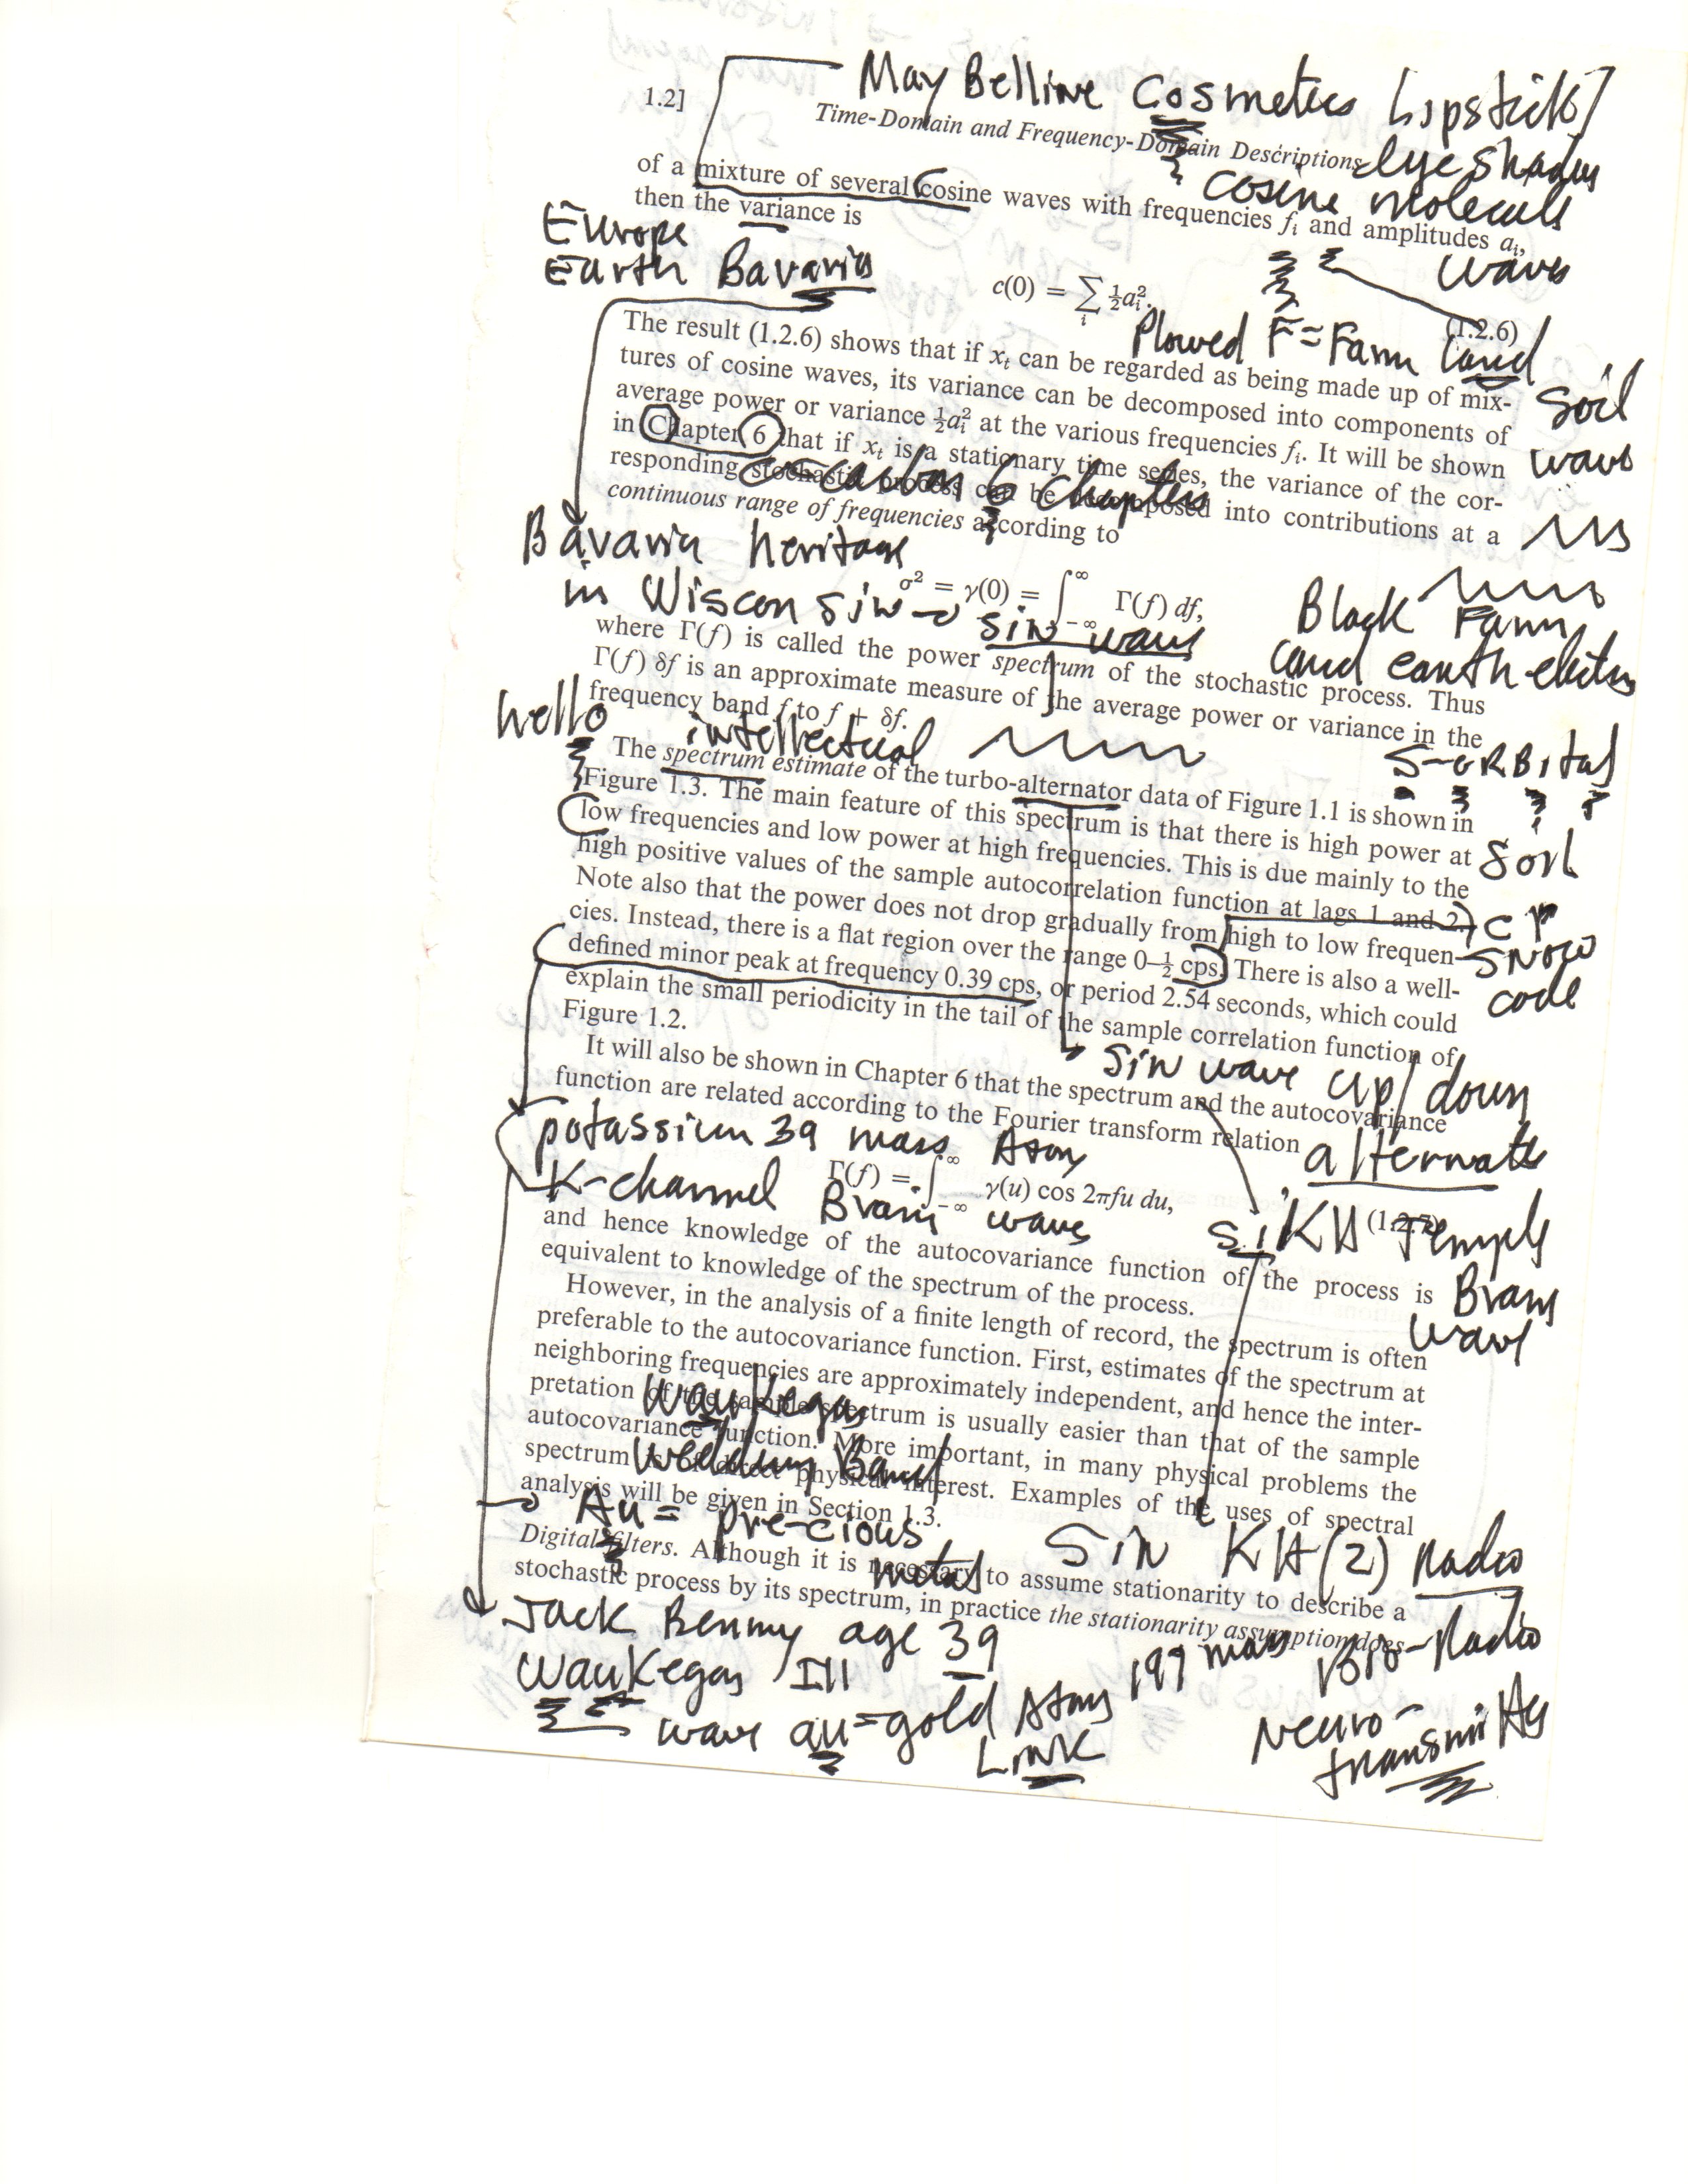 May Belline Cosmetics Lipstick
1.2]
Time-Domain and Frequency-Domain Descriptions
eye shadow
cosine molecule
waves
of a mixture of several cosine waves with frequencies fᵢ and amplitudes aᵢ,
then the variance is
Europe
Earth Bavaria
c(0) = ∑ᵢ ½aᵢ².
(1.2.6)
Plowed F = Farm Land
Soil
wave
The result (1.2.6) shows that if xₜ can be regarded as being made up of mix-
tures of cosine waves, its variance can be decomposed into components of
average power or variance ½aᵢ² at the various frequencies fᵢ. It will be shown
in Chapter 6 that if xₜ is a stationary time series, the variance of the cor-
responding stochastic process can be decomposed into contributions at a
continuous range of frequencies according to
c-carbon 6 Chapter
Bavaria heritage
in Wisconsin
sin wave
σ² = γ(0) = ∫₋∞^∞ Γ(f) df,
Black Farm
Land earth
where Γ(f) is called the power spectrum of the stochastic process. Thus
Γ(f) δf is an approximate measure of the average power or variance in the
frequency band f to f + δf.
hello
intellectual
S-ORBital
The spectrum estimate of the turbo-alternator data of Figure 1.1 is shown in
Figure 1.3. The main feature of this spectrum is that there is high power at
low frequencies and low power at high frequencies. This is due mainly to the
high positive values of the sample autocorrelation function at lags 1 and 2.
Note also that the power does not drop gradually from high to low frequen-
cies. Instead, there is a flat region over the range 0–½ cps. There is also a well-
defined minor peak at frequency 0.39 cps, or period 2.54 seconds, which could
explain the small periodicity in the tail of the sample correlation function of
Figure 1.2.
code
sin wave up/down
alternate
It will also be shown in Chapter 6 that the spectrum and the autocovariance
function are related according to the Fourier transform relation
potassium 39 mass Atom
K-channel Brain wave
Γ(f) = ∫₋∞^∞ γ(u) cos 2πfu du,
(1.2.7)
siKH Temple
Brain
wave
and hence knowledge of the autocovariance function of the process is
equivalent to knowledge of the spectrum of the process.
However, in the analysis of a finite length of record, the spectrum is often
preferable to the autocovariance function. First, estimates of the spectrum at
neighboring frequencies are approximately independent, and hence the inter-
pretation of the sample spectrum is usually easier than that of the sample
autocovariance function. More important, in many physical problems the
spectrum is of direct physical interest. Examples of the uses of spectral
analysis will be given in Section 1.3.
Waukegan
Wedding Band
Au = pre-cious
metal
Sin KH(2) Radio
Digital filters. Although it is necessary to assume stationarity to describe a
stochastic process by its spectrum, in practice the stationarity assumption does
Jack Benny age 39
Waukegan Ill
wave au=gold Atom 197 mass
Link
Radio
Neuro-
transmitter